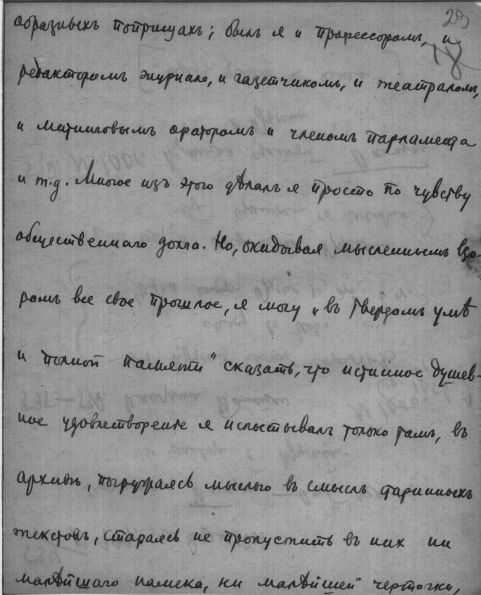 29
18
образныхъ поприщахъ; былъ я и профессоромъ, и
редакторомъ журнала, и газетчикомъ, и театраломъ,
и митинговымъ ораторомъ и членомъ парламента
и т.д. Многое изъ этого дѣлалъ я просто по чувству
общественнаго долга. Но, окидывая мысленнымъ взо-
ромъ все свое прошлое, я могу „въ твердомъ умѣ
и полной памяти" сказать, что истинное душев-
ное удовлетвореніе я испытывалъ только тамъ, въ
архивѣ, погружаясь мыслью въ смыслъ старинныхъ
текстовъ, стараясь не пропустить въ нихъ ни
малѣйшаго намека, ни малѣйшей черточки,